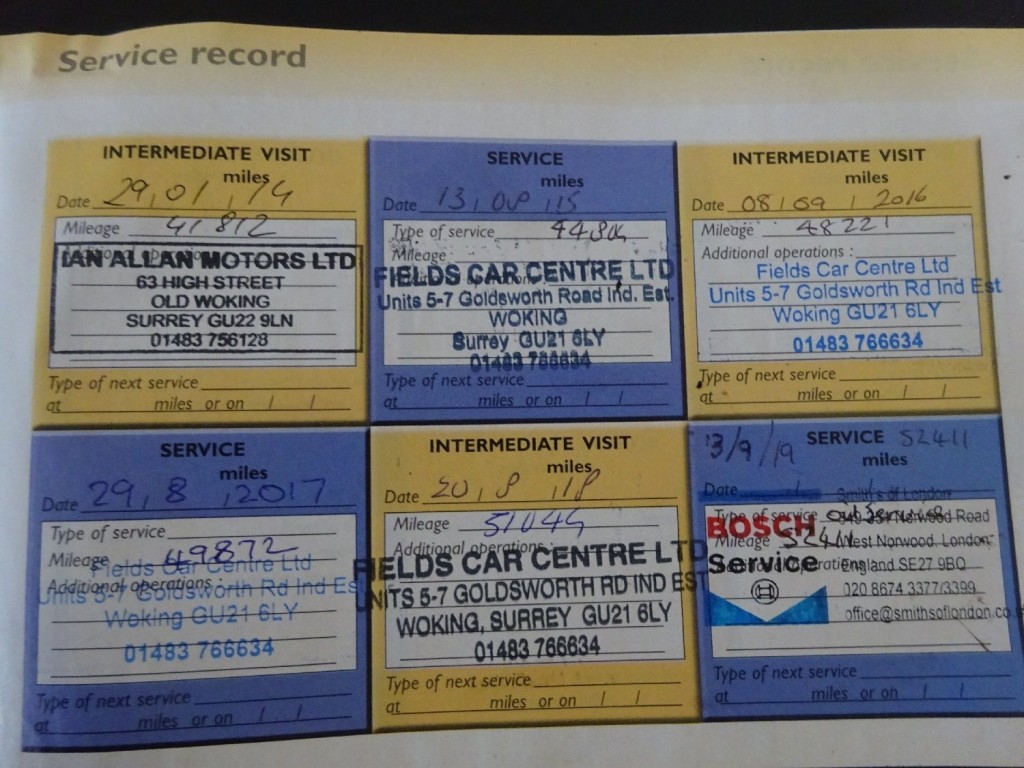 Service record
INTERMEDIATE VISIT
miles
Date 29, 01, 14
Mileage 41812
IAN ALLAN MOTORS LTD
63 HIGH STREET
OLD WOKING
SURREY GU22 9LN
01483 756128
Type of next service
at miles or on / /
SERVICE
miles
Date 13, 08, 15
Type of service
Mileage
FIELDS CAR CENTRE LTD
Units 5-7 Goldsworth Road Ind. Est.
WOKING
Surrey GU21 6LY
01483 766634
Type of next service
at miles or on / /
INTERMEDIATE VISIT
miles
Date 08 / 09 / 2016
Mileage 48221
Additional operations :
Fields Car Centre Ltd
Units 5-7 Goldsworth Rd Ind Est
Woking GU21 6LY
01483 766634
Type of next service
at miles or on / /
SERVICE
miles
Date 29, 8, 2017
Type of service
Mileage 49872
Additional operations :
Fields Car Centre Ltd
Units 5-7 Goldsworth Rd Ind Est
Woking GU21 6LY
01483 766634
Type of next service
at miles or on / /
INTERMEDIATE VISIT
miles
Date 20, 8, 18
Mileage 51044
Additional operations :
FIELDS CAR CENTRE LTD
UNITS 5-7 GOLDSWORTH RD IND EST
WOKING, SURREY GU21 6LY
01483 766634
Type of next service
at miles or on / /
13/9/19 SERVICE 52411
miles
Date
Smith's of London
Type of service
Norwood Road
BOSCH
Mileage 52411
West Norwood, London
Service
England SE27 9BQ
020 8674 3377/3399
office@smithsoflondon.co
Type of next service
at miles or on / /